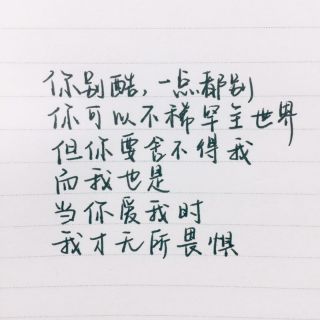 你别酷，一点都别
你可以不稀罕全世界
但你要舍不得我
而我也是
当你爱我时
我才无所畏惧